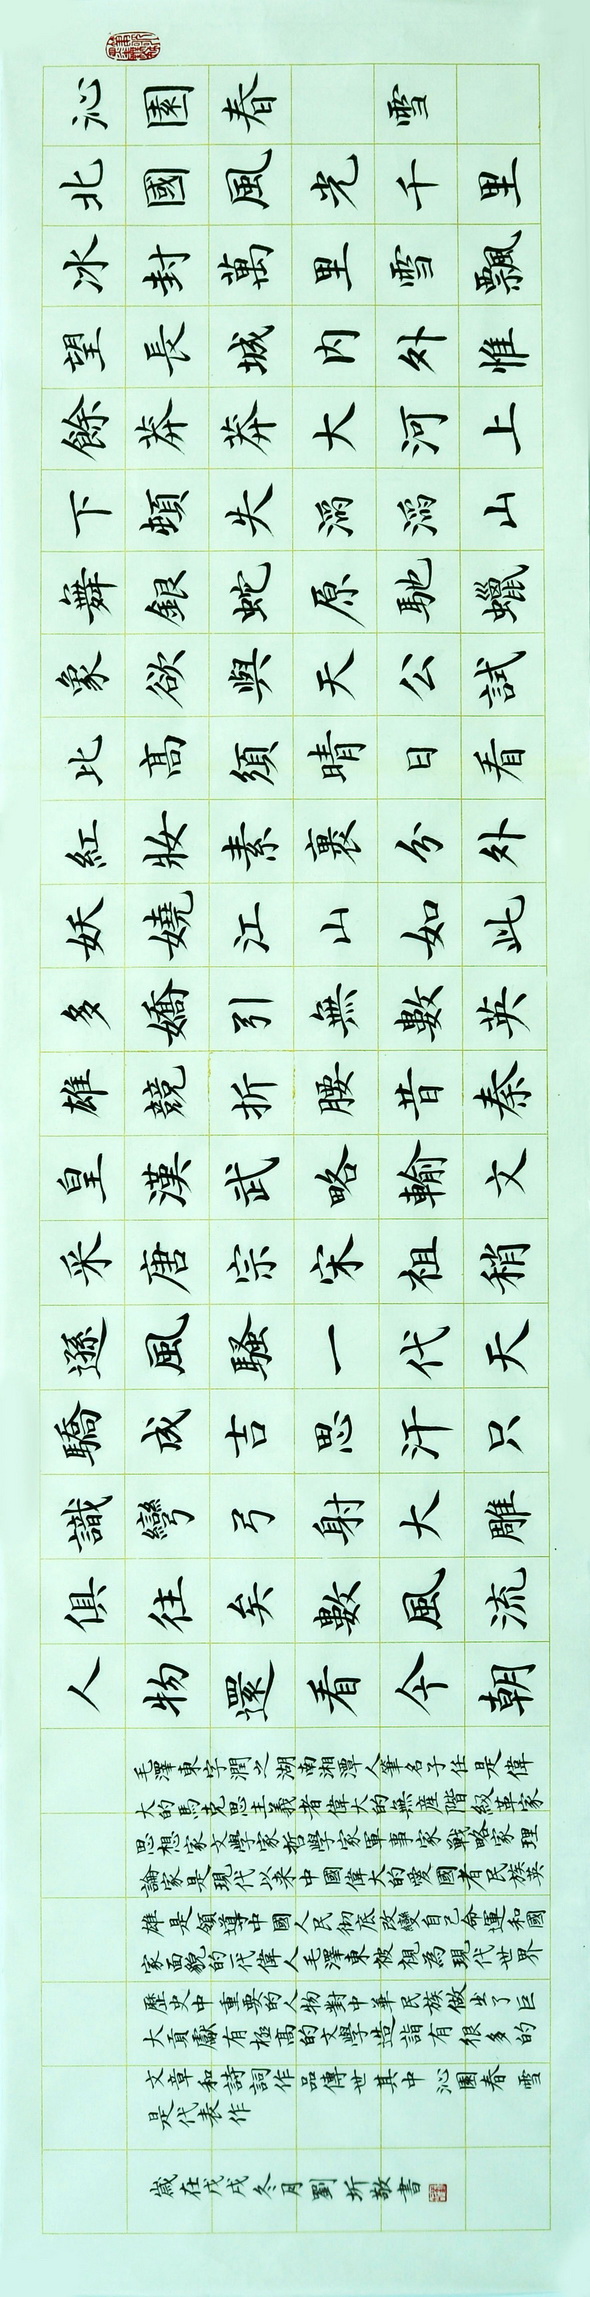 沁園春 雪
北國風光千里
冰封萬里雪飄
望長城内外惟
餘莽莽大河上
下頓失滔滔山
舞銀蛇原馳蠟
象欲與天公試
比高須晴日看
紅妝素裹分外
妖嬈江山如此
多嬌引無數英
雄競折腰昔秦
皇漢武略輸文
采唐宗宋祖稍
遜風騷一代天
驕成吉思汗只
識彎弓射大雕
俱往矣數風流
人物還看今朝
毛澤東字潤之湖南湘潭人筆名子任是偉
大的馬克思主義者偉大的無産階級革家
思想家文學家哲學家軍事家戰略家理
論家是現代以来中國偉大的愛國者民族英
雄是領導中國人民彻底改變自己命運和國
家面貌的一代偉人毛澤東被視為現代世界
歷史中重要的人物對中華民族做出了巨
大貢獻有極高的文學造詣有很多的
文章和詩詞作品傳世其中沁園春雪
是代表作
歲在戊戌冬月劉圻敬書